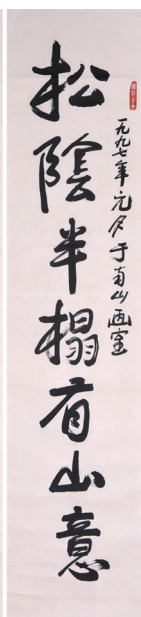 松陰半榻有山意
一九九七年元月于南山画室